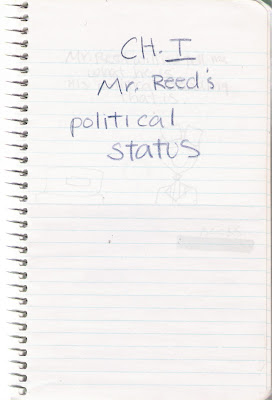 CH. I
Mr. Reed's
political
status